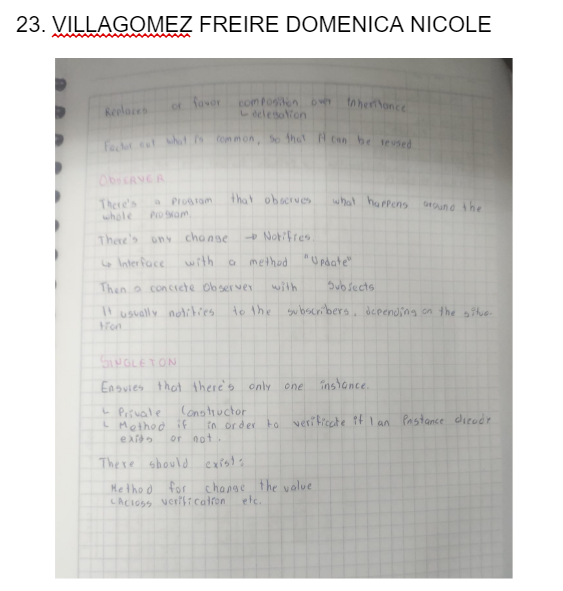 23. VILLAGOMEZ FREIRE DOMENICA NICOLE
of favor composition over Inheritance
↳ delegation
Factor out what is common, so that it can be reused
OBSERVER
There's a program that observes what happens around the
whole program.
There's any change → Notifies
↳ Interface with a method "Update"
Then a concrete observer with Subjects
It usually notifies to the subscribers, depending on the situa-
tion
SINGLETON
Ensures that there's only one instance.
↳ Private Constructor
↳ Method if in order to verificate if 1 an instance
exists or not.
There should exist:
Method for change the value
↳ Access verification etc.